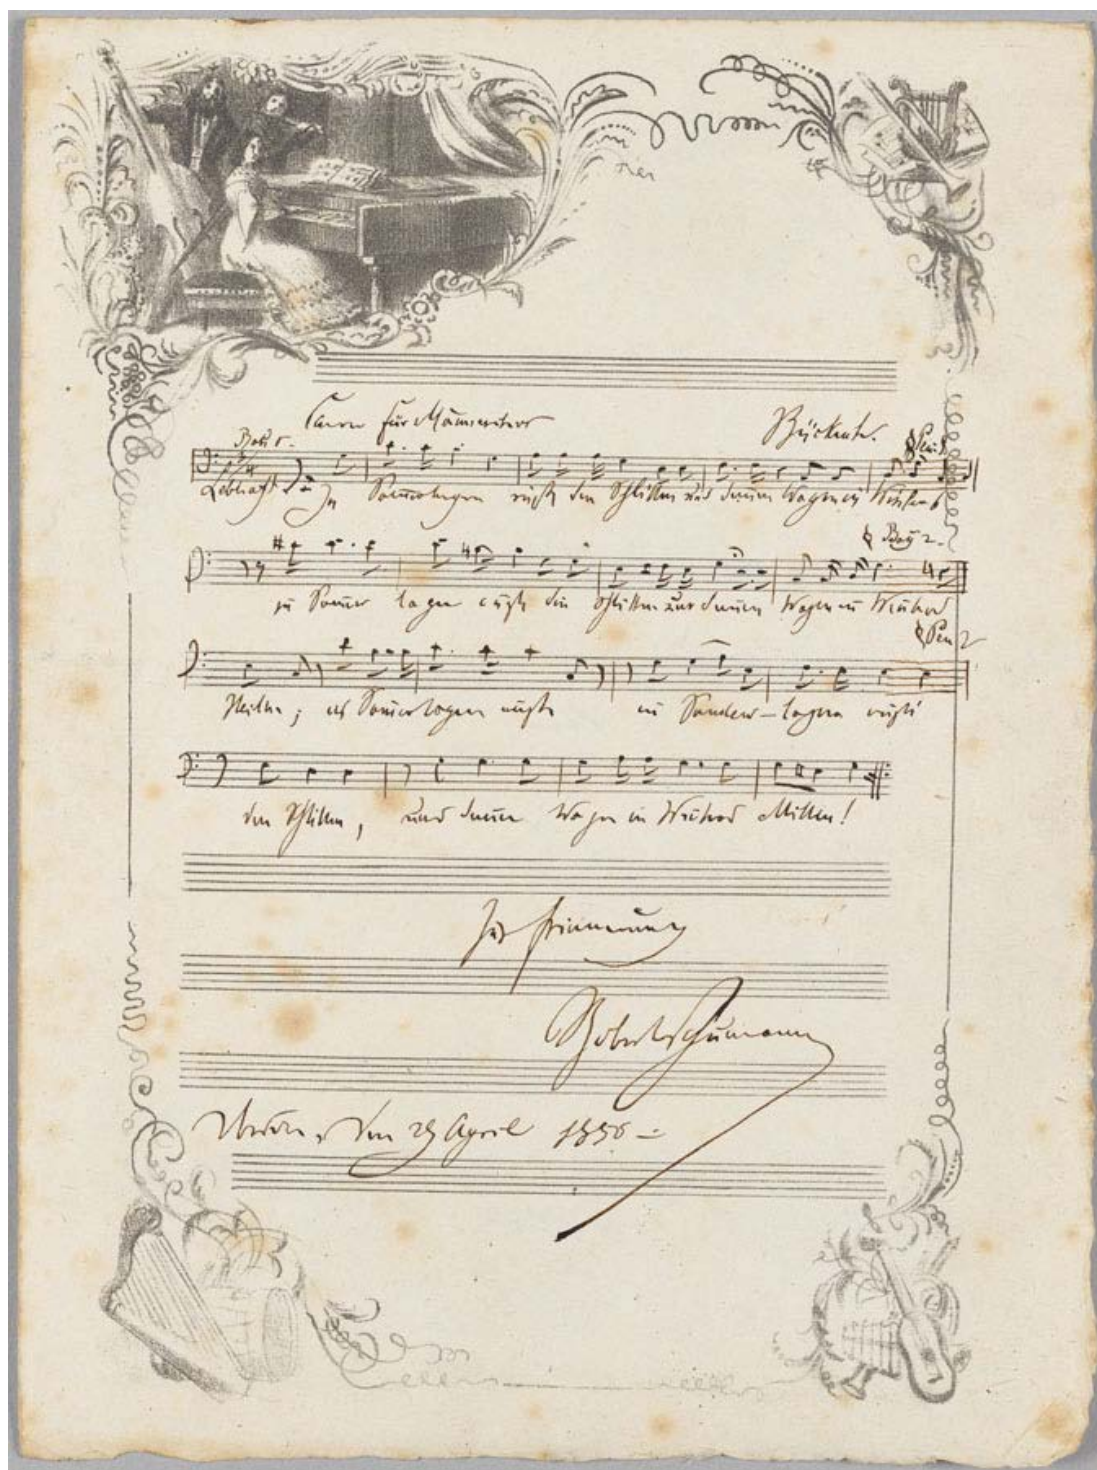 Canon für Männerchor Rückert.
Bass 1. Ten. 1.
Lebhaft In Sommertagen rüste den Schlitten und deinen Wagen in Winters
Bass 2.
in Sommertagen rüste den Schlitten und deinen Wagen in Winters
Ten 2
Mitten; in Sommertagen rüste in Sommer-tagen rüste
den Schlitten, und deinen Wagen in Winters Mitten!
Zur Erinnerung
Robert Schumann
den 29 April 1850